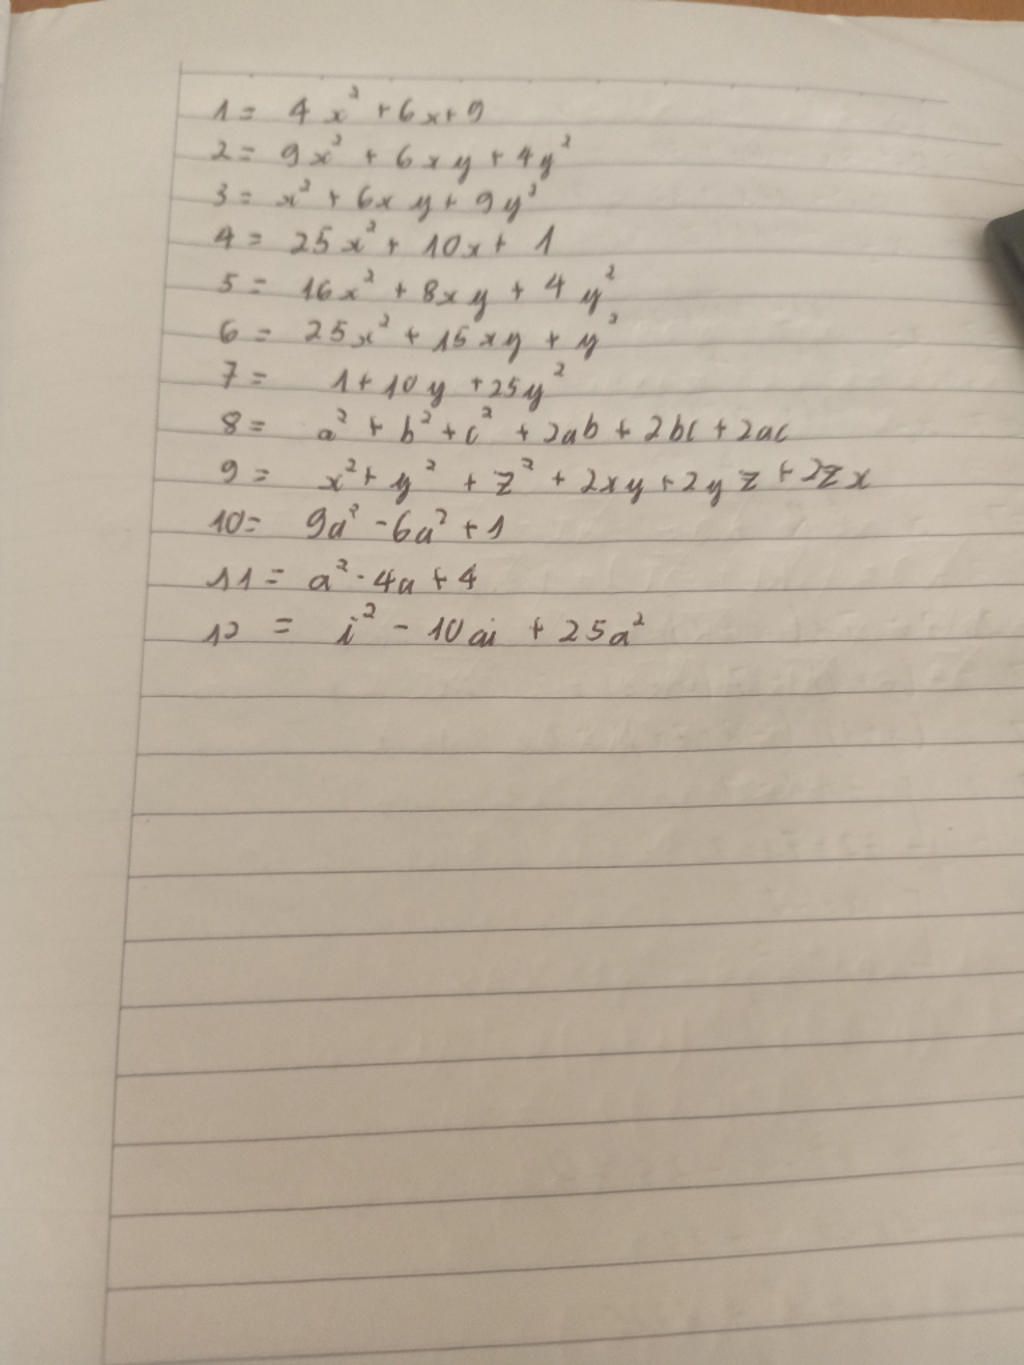 1 = 4x² + 6x + 9
2 = 9x² + 6xy + 4y²
3 = x² + 6xy + 9y²
4 = 25x² + 10x + 1
5 = 16x² + 8xy + 4y²
6 = 25x² + 15xy + y²
7 = 1 + 10y + 25y²
8 = a² + b² + c² + 2ab + 2bc + 2ac
9 = x² + y² + z² + 2xy + 2yz + 2zx
10 = 9a² - 6a² + 1
11 = a² - 4a + 4
12 = i² - 10ai + 25a²